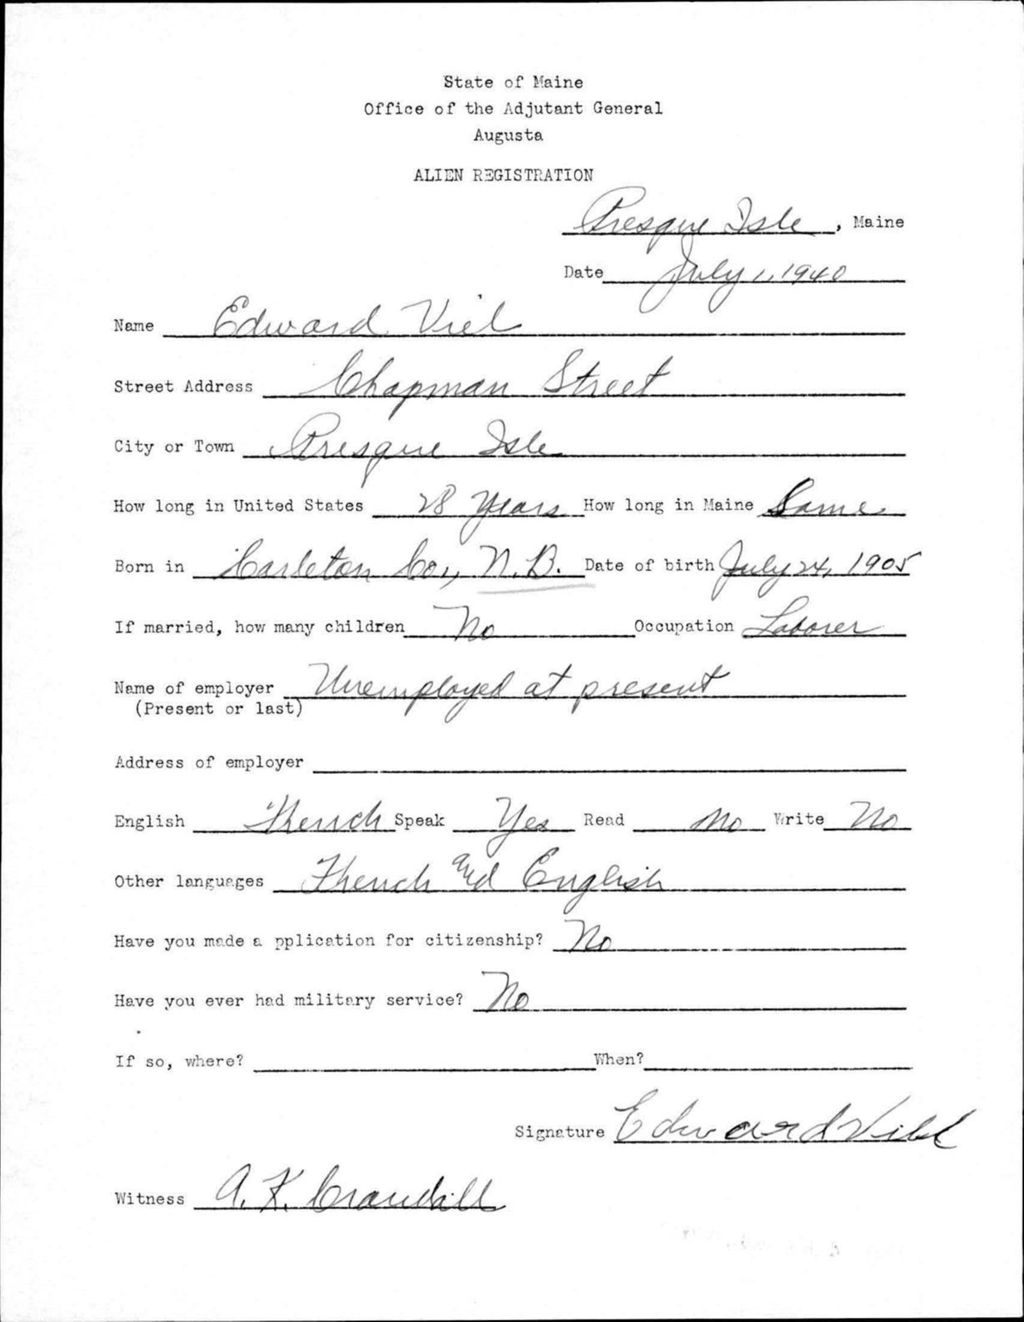 State of Maine
Office of the Adjutant General
Augusta
ALIEN REGISTRATION
Presque Isle, Maine
Date July 1, 1940
Name Edward Viel
Street Address Chapman Street
City or Town Presque Isle
How long in United States 28 Years How long in Maine Same
Born in Carleton Co., N.B. Date of birth July 24, 1905
If married, how many children No Occupation Laborer
Name of employer Unemployed at present
(Present or last)
Address of employer
English French Speak Yes Read No Write No
Other languages French and English
Have you made a pplication for citizenship? No
Have you ever had military service? No
If so, where? When?
Signature Edward Viel
Witness A. K. Crandall